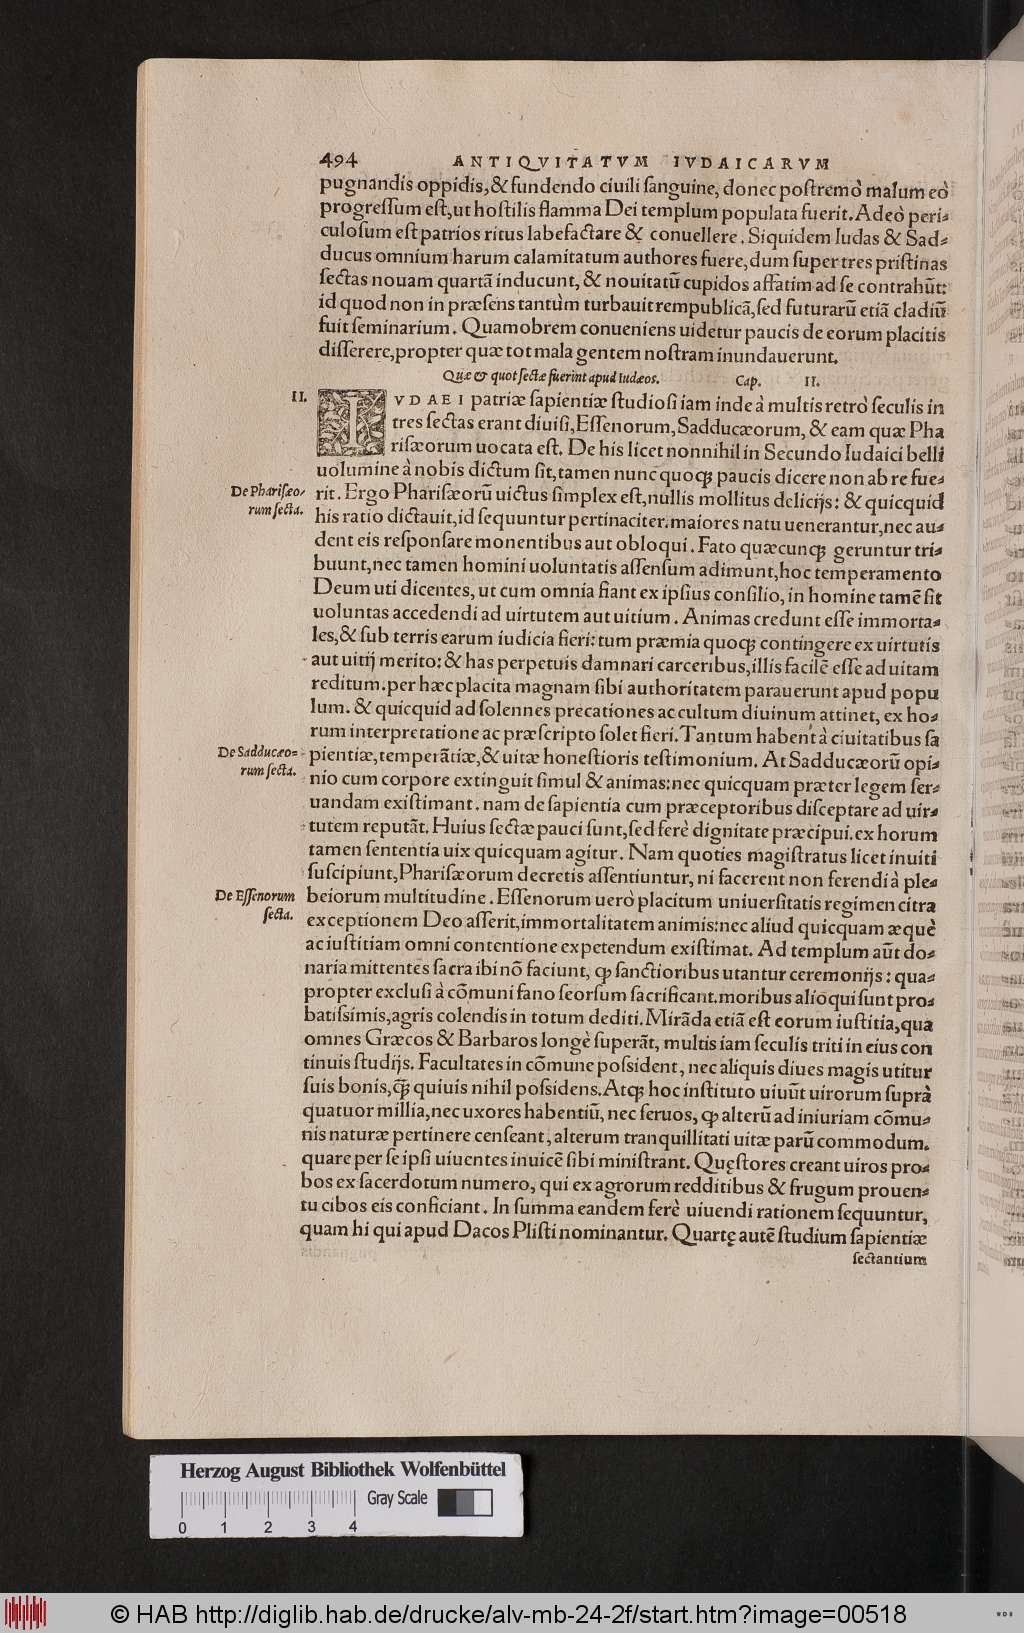 494 ANTIQVITATVM IVDAICARVM
pugnandis oppidis, & fundendo ciuili ſanguine, donec poſtremò malum eò
progreſſum eſt, ut hoſtilis flamma Dei templum populata fuerit. Adeò peri-
culoſum eſt patrios ritus labefactare & conuellere. Siquidem Iudas & Sad-
ducus omnium harum calamitatum authores fuere, dum ſuper tres priſtinas
ſectas nouam quartā inducunt, & nouitatū cupidos affatim ad ſe contrahūt:
id quod non in præſens tantùm turbauit rempublicā, ſed futurarū etiā cladiū
fuit ſeminarium. Quamobrem conueniens uidetur paucis de eorum placitis
diſſerere, propter quæ tot mala gentem noſtram inundauerunt.
Quæ & quot ſectæ fuerint apud Iudæos. Cap. II.
II. IVDAEI patriæ ſapientiæ ſtudioſi iam inde à multis retrò ſeculis in
tres ſectas erant diuiſi, Eſſenorum, Sadducæorum, & eam quæ Pha
riſæorum uocata eſt. De his licet nonnihil in Secundo Iudaici belli
uolumine à nobis dictum ſit, tamen nunc quoqꝫ paucis dicere non ab re fue-
De Phariſæo-
rum ſecta.
rit. Ergo Phariſæorū uictus ſimplex eſt, nullis mollitus delicijs: & quicquid
his ratio dictauit, id ſequuntur pertinaciter. maiores natu uenerantur, nec au-
dent eis reſponſare monentibus aut obloqui. Fato quæcunqꝫ geruntur tri-
buunt, nec tamen homini uoluntatis aſſenſum adimunt, hoc temperamento
Deum uti dicentes, ut cum omnia fiant ex ipſius conſilio, in homine tamē ſit
uoluntas accedendi ad uirtutem aut uitium. Animas credunt eſſe immorta-
les, & ſub terris earum iudicia fieri: tum præmia quoqꝫ contingere ex uirtutis
aut uitij merito: & has perpetuis damnari carceribus, illis facilē eſſe ad uitam
reditum. per hæc placita magnam ſibi authoritatem parauerunt apud popu
lum. & quicquid ad ſolennes precationes ac cultum diuinum attinet, ex ho-
rum interpretatione ac præſcripto ſolet fieri. Tantum habent à ciuitatibus ſa
De Sadducæo-
rum ſecta.
pientiæ, temperātiæ, & uitæ honeſtioris teſtimonium. At Sadducæorū opi-
nio cum corpore extinguit ſimul & animas: nec quicquam præter legem ſer-
uandam exiſtimant. nam de ſapientia cum præceptoribus diſceptare ad uir-
tutem reputāt. Huius ſectæ pauci ſunt, ſed ferè dignitate præcipui. ex horum
tamen ſententia uix quicquam agitur. Nam quoties magiſtratus licet inuiti
ſuſcipiunt, Phariſæorum decretis aſſentiuntur, ni facerent non ferendi à ple-
De Eſſenorum
ſecta.
beiorum multitudine. Eſſenorum uerò placitum uniuerſitatis regimen citra
exceptionem Deo aſſerit, immortalitatem animis: nec aliud quicquam æquè
ac iuſtitiam omni contentione expetendum exiſtimat. Ad templum aūt do-
naria mittentes ſacra ibi nō faciunt, ꝙ ſanctioribus utantur ceremonijs: qua-
propter excluſi à cōmuni fano ſeorſum ſacrificant. moribus alioqui ſunt pro-
batiſsimis, agris colendis in totum dediti. Mirāda etiā eſt eorum iuſtitia, qua
omnes Græcos & Barbaros longè ſuperāt, multis iam ſeculis triti in eius con
tinuis ſtudijs. Facultates in cōmune poſsident, nec aliquis diues magis utitur
ſuis bonis, q̄ꝫ quiuis nihil poſsidens. Atqꝫ hoc inſtituto uiuūt uirorum ſuprà
quatuor millia, nec uxores habentiū, nec ſeruos, ꝙ alterū ad iniuriam cōmu-
nis naturæ pertinere cenſeant, alterum tranquillitati uitæ parū commodum.
quare per ſe ipſi uiuentes inuicē ſibi miniſtrant. Quęſtores creant uiros pro-
bos ex ſacerdotum numero, qui ex agrorum redditibus & frugum prouen-
tu cibos eis conficiant. In ſumma eandem ferè uiuendi rationem ſequuntur,
quam hi qui apud Dacos Pliſti nominantur. Quartę autē ſtudium ſapientiæ
ſectantium
Herzog August Bibliothek Wolfenbüttel
Gray Scale
0 1 2 3 4
© HAB http://diglib.hab.de/drucke/alv-mb-24-2f/start.htm?image=00518